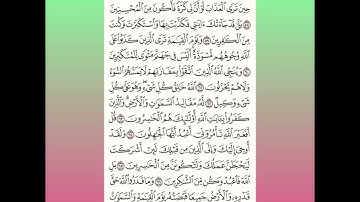 حِينَ تَرَى ٱلْعَذَابَ لَوْ أَنَّ لِى كَرَّةً فَأَكُونَ مِنَ ٱلْمُحْسِنِينَ
۝٥٨ بَلَىٰ قَدْ جَآءَتْكَ ءَايَٰتِى فَكَذَّبْتَ بِهَا وَٱسْتَكْبَرْتَ وَكُنتَ
مِنَ ٱلْكَٰفِرِينَ ۝٥٩ وَيَوْمَ ٱلْقِيَٰمَةِ تَرَى ٱلَّذِينَ كَذَبُوا۟ عَلَى
ٱللَّهِ وُجُوهُهُم مُّسْوَدَّةٌ أَلَيْسَ فِى جَهَنَّمَ مَثْوًى لِّلْمُتَكَبِّرِينَ
۝٦٠ وَيُنَجِّى ٱللَّهُ ٱلَّذِينَ ٱتَّقَوْا۟ بِمَفَازَتِهِمْ لَا يَمَسُّهُمُ ٱلسُّوٓءُ
وَلَا هُمْ يَحْزَنُونَ ۝٦١ ٱللَّهُ خَٰلِقُ كُلِّ شَىْءٍ وَهُوَ عَلَىٰ كُلِّ
شَىْءٍ وَكِيلٌ ۝٦٢ لَّهُۥ مَقَالِيدُ ٱلسَّمَٰوَٰتِ وَٱلْأَرْضِ وَٱلَّذِينَ
كَفَرُوا۟ بِـَٔايَٰتِ ٱللَّهِ أُو۟لَٰٓئِكَ هُمُ ٱلْخَٰسِرُونَ ۝٦٣ قُلْ
أَفَغَيْرَ ٱللَّهِ تَأْمُرُوٓنِّىٓ أَعْبُدُ أَيُّهَا ٱلْجَٰهِلُونَ ۝٦٤ وَلَقَدْ
أُوحِىَ إِلَيْكَ وَإِلَى ٱلَّذِينَ مِن قَبْلِكَ لَئِنْ أَشْرَكْتَ
لَيَحْبَطَنَّ عَمَلُكَ وَلَتَكُونَنَّ مِنَ ٱلْخَٰسِرِينَ ۝٦٥ بَلِ
ٱللَّهَ فَٱعْبُدْ وَكُن مِّنَ ٱلشَّٰكِرِينَ ۝٦٦ وَمَا قَدَرُوا۟ ٱللَّهَ حَقَّ
قَدْرِهِۦ وَٱلْأَرْضُ جَمِيعًا قَبْضَتُهُۥ يَوْمَ ٱلْقِيَٰمَةِ وَٱلسَّمَٰوَٰتُ